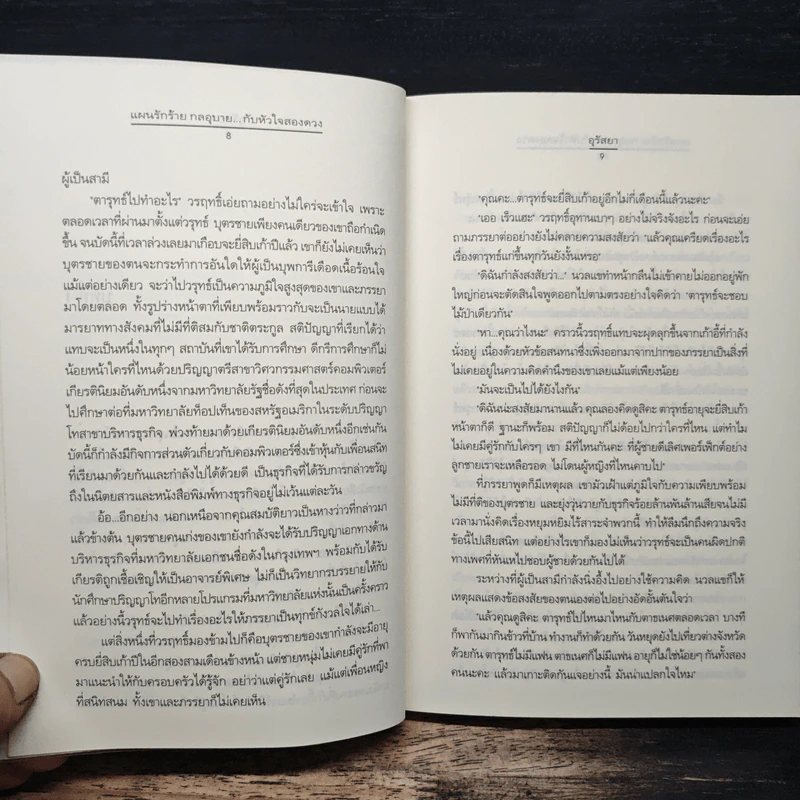 แผนรักร้าย กลอุบาย...กับหัวใจสองดวง
8
ผู้เป็นสามี
"ตารุทธ์ไปทำอะไร" วรฤทธิ์เอ่ยถามอย่างไม่ใคร่จะเข้าใจ เพราะ
ตลอดเวลาที่ผ่านมาตั้งแต่วรุทธ์ บุตรชายเพียงคนเดียวของเขาถือกำเนิด
ขึ้น จนบัดนี้ที่เวลาล่วงเลยมาเกือบจะยี่สิบเก้าปีแล้ว เขาก็ยังไม่เคยเห็นว่า
บุตรชายของตนจะกระทำการอันใดให้ผู้เป็นบุพการีเดือดเนื้อร้อนใจ
แม้แต่อย่างเดียว จะว่าไปวรุทธ์เป็นความภูมิใจสูงสุดของเขาและภรรยา
มาโดยตลอด ทั้งรูปร่างหน้าตาที่เพียบพร้อมราวกับจะเป็นนายแบบได้
มารยาททางสังคมที่ไม่มีที่ติสมกับชาติตระกูล สติปัญญาที่เรียกได้ว่า
แทบจะเป็นหนึ่งในทุกๆ สถาบันที่เขาได้รับการศึกษา ดีกรีการศึกษาก็ไม่
น้อยหน้าใครที่ไหนด้วยปริญญาตรีสาขาวิศวกรรมศาสตร์คอมพิวเตอร์
เกียรตินิยมอันดับหนึ่งจากมหาวิทยาลัยรัฐชื่อดังที่สุดในประเทศ ก่อนจะ
ไปศึกษาต่อที่มหาวิทยาลัยท็อปเท็นของสหรัฐอเมริกาในระดับปริญญา
โทสาขาบริหารธุรกิจ พ่วงท้ายมาด้วยเกียรตินิยมอันดับหนึ่งอีกเช่นกัน
บัดนี้ก็กำลังมีกิจการส่วนตัวเกี่ยวกับคอมพิวเตอร์ซึ่งเข้าหุ้นกับเพื่อนสนิท
ที่เรียนมาด้วยกันและกำลังไปได้ด้วยดี เป็นธุรกิจที่ได้รับการกล่าวขวัญ
ถึงในนิตยสารและหนังสือพิมพ์ทางธุรกิจอยู่ไม่เว้นแต่ละวัน
อ้อ...อีกอย่าง นอกเหนือจากคุณสมบัติยาวเป็นหางว่าวที่กล่าวมา
แล้วข้างต้น บุตรชายคนเก่งของเขายังกำลังจะได้รับปริญญาเอกทางด้าน
บริหารธุรกิจที่มหาวิทยาลัยเอกชนชื่อดังในกรุงเทพฯ พร้อมกับได้รับ
เกียรติถูกเชื้อเชิญให้เป็นอาจารย์พิเศษ ไม่ก็เป็นวิทยากรบรรยายให้กับ
นักศึกษาปริญญาโทอีกหลายโปรแกรมที่มหาวิทยาลัยแห่งนั้นเป็นครั้งคราว
แล้วอย่างนี้วรุทธ์จะไปทำเรื่องอะไรให้ภรรยาเป็นทุกข์กังวลใจได้เล่า...
แต่สิ่งหนึ่งที่วรฤทธิ์มองข้ามไปก็คือบุตรชายของเขากำลังจะมีอายุ
ครบยี่สิบเก้าปีในอีกสองสามเดือนข้างหน้า แต่ชายหนุ่มไม่เคยมีคู่รักที่พา
มาแนะนำให้กับครอบครัวได้รู้จัก อย่าว่าแต่คู่รักเลย แม้แต่เพื่อนหญิง
ที่สนิทสนม ทั้งเขาและภรรยาก็ไม่เคยเห็น
อุรัสยา
9
"คุณคะ...ตารุทธ์จะยี่สิบเก้าอยู่อีกไม่กี่เดือนนี้แล้วนะคะ"
"เออ เร็วแฮะ" วรฤทธิ์อุทานเบาๆ อย่างไม่จริงจังอะไร ก่อนจะเอ่ย
ถามภรรยาต่ออย่างยังไม่คลายความสงสัย "แล้วคุณเครียดเรื่องอะไร
เรื่องตารุทธ์แก่ขึ้นทุกวันยังงั้นเหรอ"
"ดิฉันกำลังสงสัยว่า..." นวลแขทำหน้ากลืนไม่เข้าคายไม่ออกอยู่พัก
ใหญ่ก่อนจะตัดสินใจพูดออกไปตามตรงอย่างใจคิดว่า "ตารุทธ์จะชอบ
ไม้ป่าเดียวกัน"
"หา...คุณว่าไงนะ" คราวนี้วรฤทธิ์แทบจะผุดลุกขึ้นจากเก้าอี้ที่กำลัง
นั่งอยู่ เนื่องด้วยหัวข้อสนทนาซึ่งเพิ่งออกมาจากปากของภรรยาเป็นสิ่งที่
ไม่เคยอยู่ในความคิดคำนึงของเขาเลยแม้แต่เพียงน้อย
"มันจะเป็นไปได้ยังไงกัน"
"ดิฉันน่ะสงสัยมานานแล้ว คุณลองคิดดูสิคะ ตารุทธ์อายุจะยี่สิบเก้า
หน้าตาก็ดี ฐานะก็พร้อม สติปัญญาก็ไม่ด้อยไปกว่าใครที่ไหน แต่ทำไม
ไม่เคยมีคู่รักกับใครๆ เขา มีที่ไหนกันคะ ที่ผู้ชายดีเลิศเพอร์เฟ็กต์อย่าง
ลูกชายเราจะเหลือรอด ไม่โดนผู้หญิงที่ไหนคาบไป"
ที่ภรรยาพูดก็มีเหตุผล เขามัวเฝ้าแต่ภูมิใจกับความเพียบพร้อม
ไม่มีที่ติของบุตรชาย และยุ่งวุ่นวายกับธุรกิจร้อยล้านพันล้านเสียจนไม่มี
เวลามานั่งคิดเรื่องหยุมหยิมไร้สาระจำพวกนี้ ทำให้ลืมนึกถึงความจริง
ข้อนี้ไปเสียสนิท แต่อย่างไรเขาก็มองไม่เห็นว่าวรุทธ์จะเป็นคนผิดปกติ
ทางเพศที่หันเหไปชอบผู้ชายด้วยกันไปได้
ระหว่างที่ผู้เป็นสามีกำลังนิ่งอึ้งไปอย่างใช้ความคิด นวลแขก็ให้
เหตุผลแสดงข้อสงสัยของตนเองต่อไปอย่างอัดอั้นตันใจว่า
"แล้วคุณดูสิคะ ตารุทธ์ไปไหนมาไหนกับตาธเนศตลอดเวลา บางที
ก็พากันมากินข้าวที่บ้าน ทำงานก็ทำด้วยกัน วันหยุดยังไปเที่ยวต่างจังหวัด
ด้วยกัน ตารุทธ์ไม่มีแฟน ตาธเนศก็ไม่มีแฟน อายุก็ไม่ใช่น้อยๆ กันทั้งสอง
คนนะคะ แล้วมาเกาะติดกันแจอย่างนี้ มันน่าแปลกใจไหม"